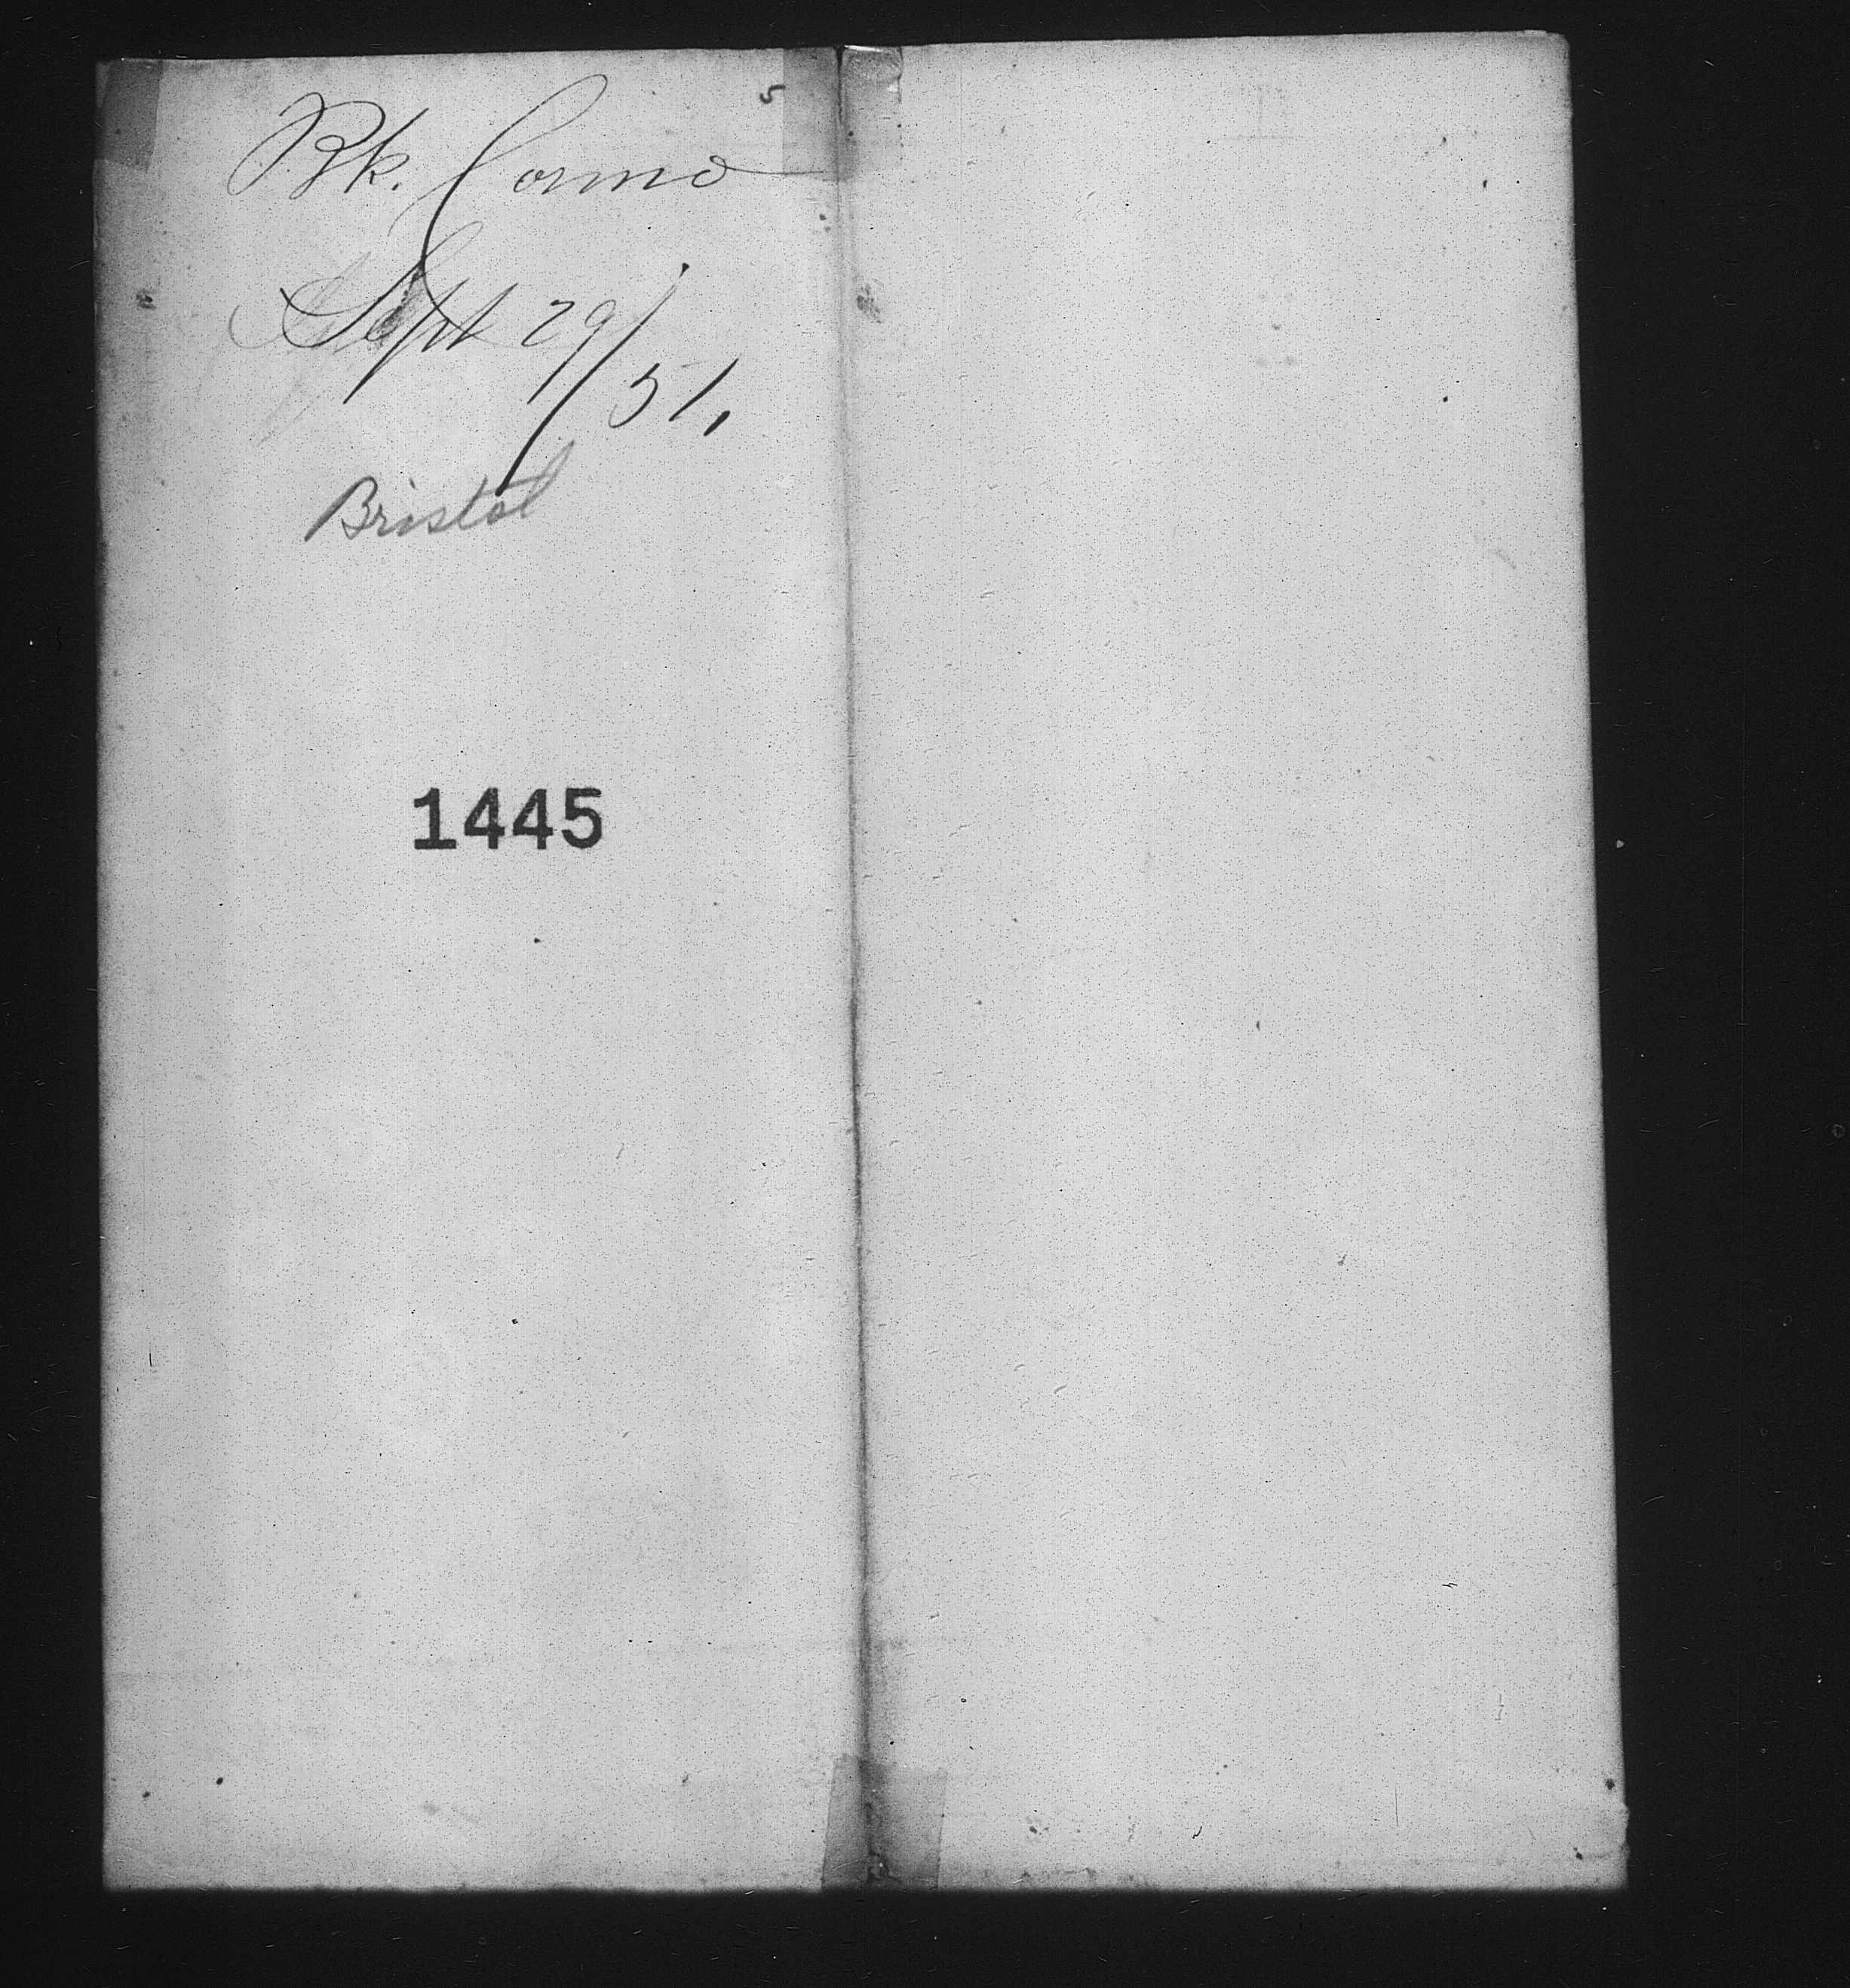 5
Bk. Como
Sept 29/
51,
Bristol
1445